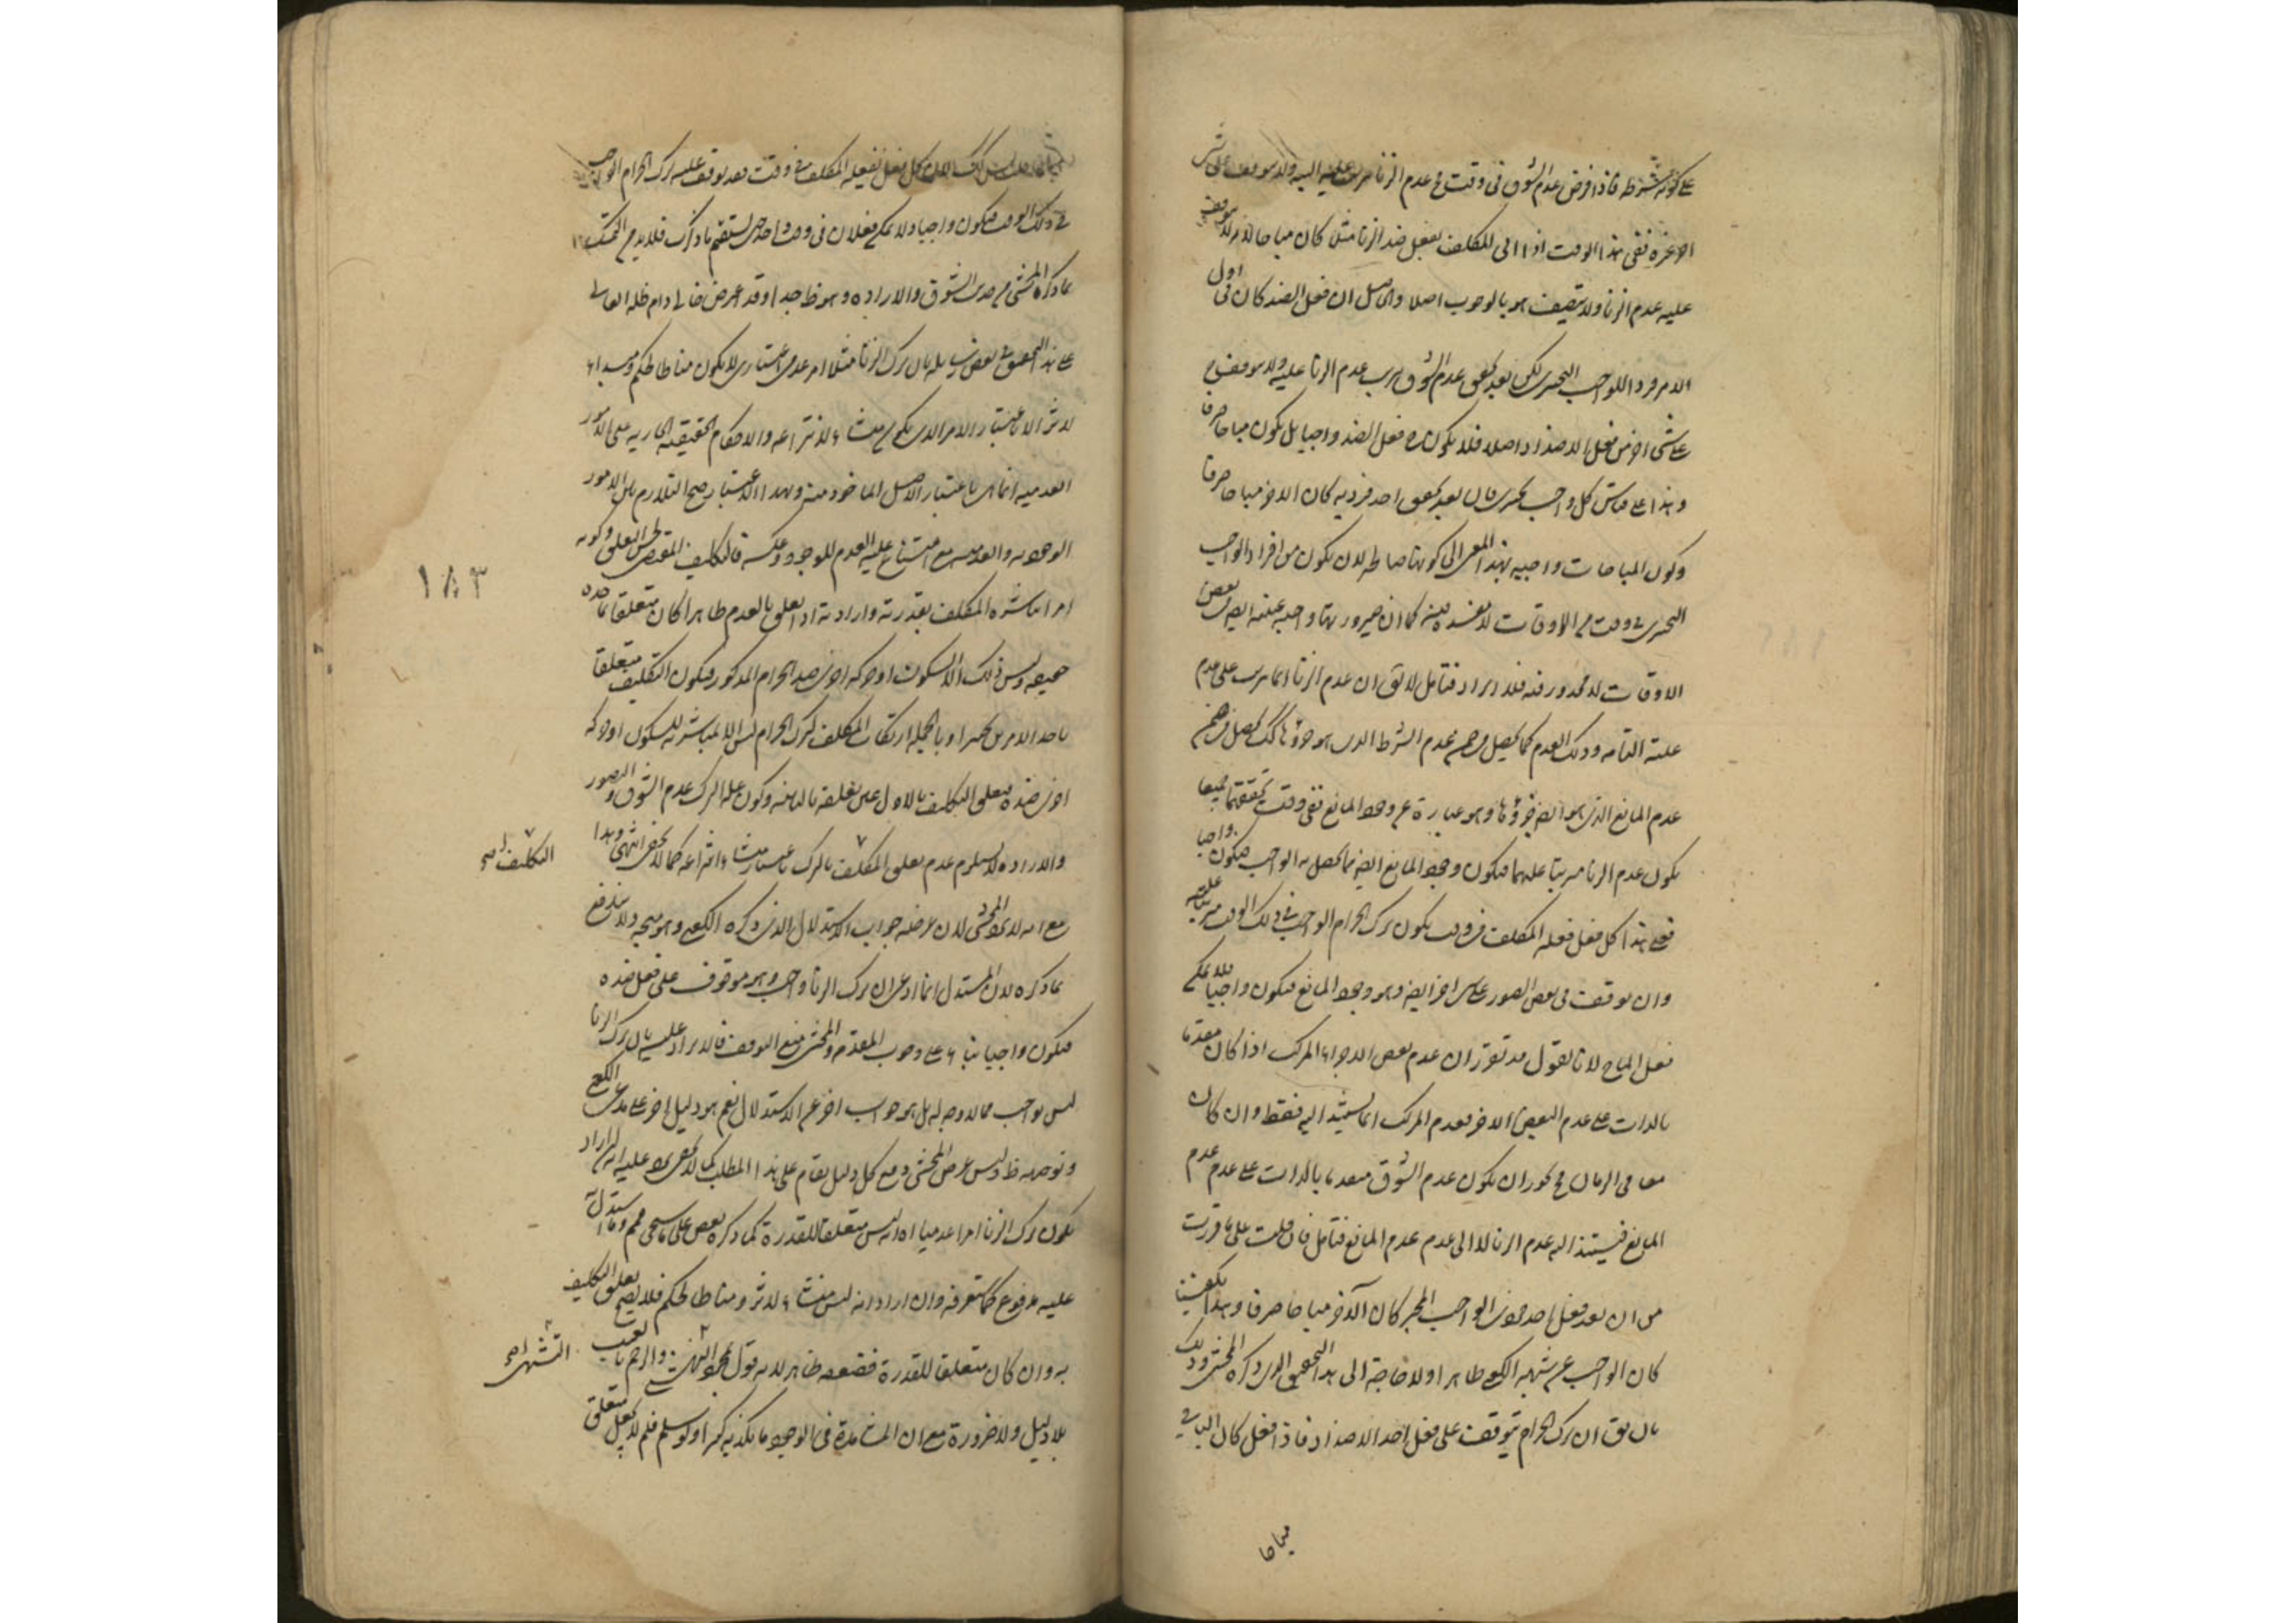 على كونه شرطه فاذا فرض عدم الشوق فى وقت فعدم الزنا مترتب عليه البتة ولا يتوقف على شئ
اخر غيره ففى هذا الوقت اذا اتى المكلف بفعل ضد الزنا مثلا كان مباحا اذ لم يتوقف
عليه عدم الزنا ولا يتصف هو بالوجوب اصلا والحاصل ان فعل الضد كان فى اول
الامر فردا للواجب التخييرى لكن بعد تحقق عدم الشوق ترتب عدم الزنا عليه ولا يتوقف
على شئ اخر من فعل الاضداد اصلا فلا يكون فعل الضد واجبا بل يكون مباحا صرفا
وهذا على قياس كل واجب تخييرى فان بعد تحقق احد فرديه كان الاخر مباحا صرفا
وكون المباحات واجبة بهذا المعنى اى كونها صالحة لان يكون من افراد الواجب
التخييرى فى وقت من الاوقات لا مفسدة فيه كما ان صيرورتها واجبة عينية ايضا فى بعض
الاوقات لا محذور فيه فلا ايراد فتامل لا يق ان عدم الزنا انما يترتب على عدم
علته التامة وذلك العدم كما يحصل فى ضمن عدم الشرط الذى هو جزؤها كك يحصل فى ضمن
عدم المانع الذى هو ايضا جزؤها وهو عبارة عن وجود المانع ففى وقت تحققهما جميعا
يكون عدم الزنا مترتبا عليهما فيكون وجود المانع ايضا مما يحصل به الواجب فيكون واجبا
فعلى هذا كل فعل فعله المكلف فى وقت يكون ترك الحرام الواجب فى ذلك الوقت مترتبا عليه
وان توقف فى بعض الصور على امر اخر ايضا وهو وجود المانع فيكون واجبا فلا يمكن
فعل المباح لانا نقول قد تقرر ان عدم بعض اجزاء المركب اذا كان مقدما
بالذات على عدم البعض الاخر فعدم المركب انما يستند اليه فقط وان كان
معا فى الزمان فيجوز ان يكون عدم الشوق متقدما بالذات على عدم عدم
المانع فيستند اليه عدم الزنا لا الى عدم عدم المانع فتامل فان قلت على ما قررت
من ان بعد فعل احد فردى الواجب المخير كان الاخر مباحا صرفا وبهذا يكفينا
كان الجواب عن شبهة الكعبى ظاهرا ولا حاجة الى هذا التحقيق الذى ذكره المحشى وذلك
بان يق ان ترك الحرام يتوقف على فعل احد الاضداد فاذا فعل كان الباقى
مباحا
كل فعل يفعله المكلف فى وقت قد يتوقف عليه ترك الحرام الواجب
فى ذلك الوقت فيكون واجبا ولا يمكن فعلان فى وقت واحد حتى يستقيم ما ذكرت فلا بد من التمسك
بما ذكره المحشى من حديث الشوق والارادة وهو ظ جدا وقد اعترض خالى دام ظله العالى
على هذا التحقيق فى بعض رسائله بان ترك الزنا مثلا امر عدمى اعتبارى لا يكون مناطا لحكم ومبدءا
لاثر الا باعتبار الامر الذى يكون منشاء لانتزاعه والاحكام الحقيقية الجارية على الامور
العدمية انما هى باعتبار الاصل الماخوذ منه وبهذا الاعتبار صح التلازم بين الامور
الوجودية والعدمية مع امتناع علية العدم للوجود وعكسه فالتكليف المقتضى لحسن التعلق وكونه
امرا يباشره المكلف بقدرته وارادته اذا تعلق بالعدم ظاهرا كان متعلقا بما خذه
حقيقة وليس ذلك الا السكون او حركة اخرى ضد الحرام المذكور فيكون التكليف متعلقا
باحد الامرين تخييرا وبالجملة ارتكاب المكلف لترك الحرام ليس الا لمباشرته للسكون او حركة
اخرى ضده فتعلق التكليف بالاول عين تعلقه بالثانى وكون علة الترك عدم الشوق والتصور
والارادة لا يستلزم عدم تعلق التكليف بالترك باعتبار منشاء انتزاعه كما لا يخفى انتهى وهذا
مع انه لا يضر المحشى لان غرضه جواب الاستدلال الذى ذكره الكعبى وهو متجه ولا يندفع
بما ذكره لان المستدل انما ادعى ان ترك الزنا واجب وهو موقوف على فعل ضده
فيكون واجبا بناء على وجوب المقدمة والمحشى منع التوقف فالايراد عليه بان ترك الزنا
ليس بواجب مما لا وجه له بل هو جواب اخر عن الاستدلال نعم هو دليل اخر على مدعى الكعبى
وتوجيه ظ وليس غرض المحشى دفع كل دليل يقام على هذا المطلب كما لا يخفى يرد عليه انه ان اراد
بكون ترك الزنا امرا عدميا انه ليس متعلقا للقدرة كما ذكره بعض على ما سيجئ فهم وما استدل به
عليه مدفوع كما ستعرفه وان اراد انه ليس منشاء لاثر ومناطا لحكم فلا يصح تعلق التكليف
به وان كان متعلقا للقدرة فضعفه ظاهر لانه قول بمجرد التشهى والرجم بالغيب
بلا دليل ولا ضرورة مع ان المشاهدة فى الوجود ما يكذبه كثيرا ولو سلم فلم لا يجعل متعلق
١٨٣
التكليف صح
التشهى صح